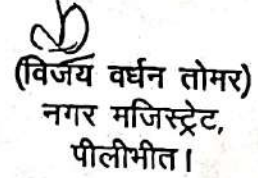 (विजय वर्धन तोमर)
नगर मजिस्ट्रेट,
पीलीभीत।